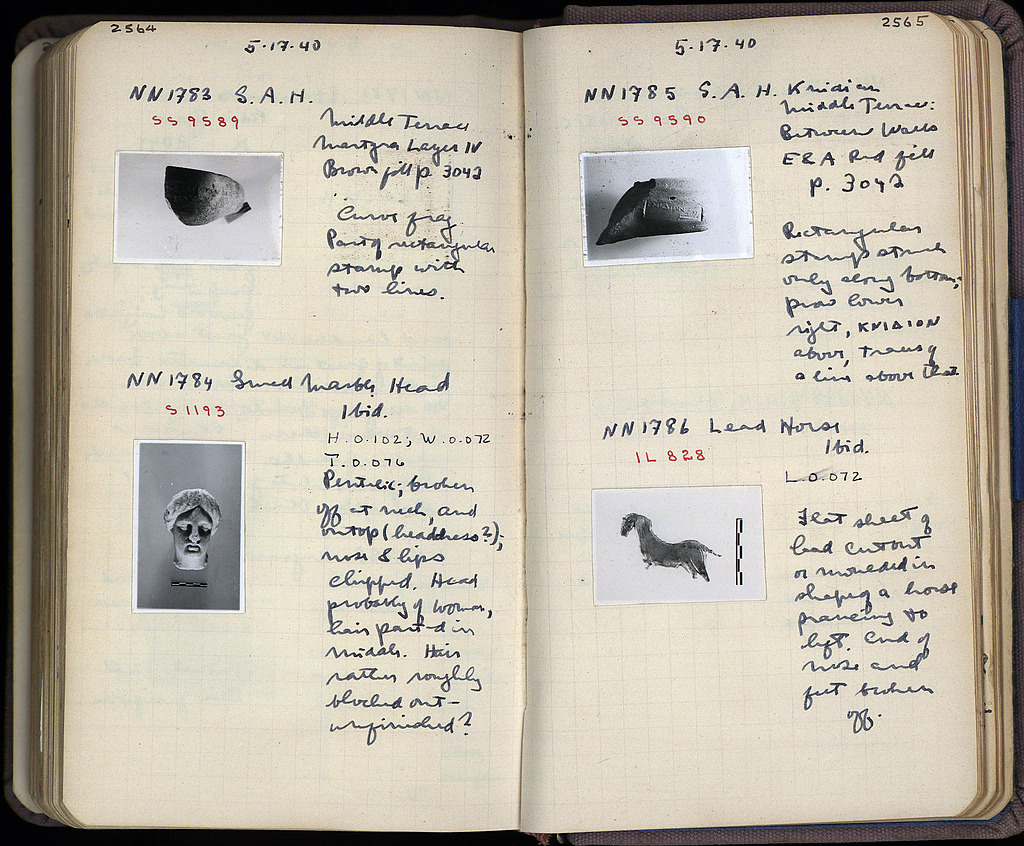 2564
5·17·40
NN1783 S.A.H.
SS 9589
Middle Terrace
Martyra Layer IV
Brown fill p. 3042
Curve frag.
Part of rectangular
stamp with
two lines.
NN1784 Small Marble Head
S 1193
Ibid.
H. 0.102; W. 0.072
T. 0.076
Pentelic; broken
off at neck, and
on top (headdress?);
nose & lips
chipped. Head
probably of woman,
hair parted in
middle. Hair
rather roughly
blocked out –
unfinished?
2565
5·17·40
NN1785 S.A.H. Knidian
SS 9590
Middle Terrace:
Between Walls
E&A Red fill
p. 3042
Rectangular
stamp struck
only along bottom;
prow lower
right, KNIΔION
above, traces of
a line above that
NN1786 Lead Horse
IL 828
Ibid.
L. 0.072
Flat sheet of
lead cut out
or moulded in
shape of a horse
prancing to
left. End of
nose and
feet broken
off.